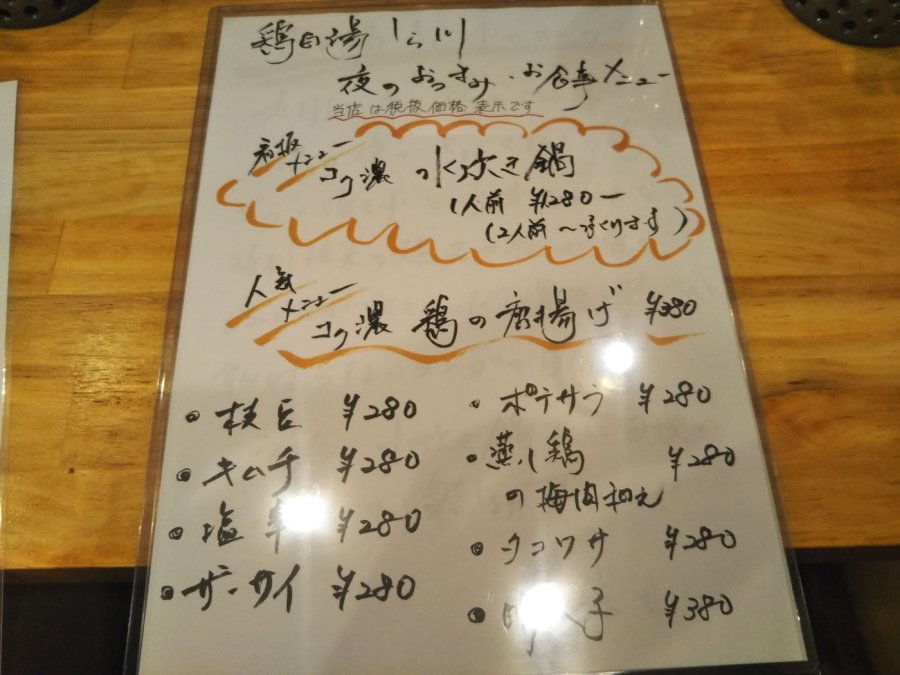 鶏白湯 しら川
夜のおつまみ・お食事メニュー
当店は税抜価格表示です
看板メニュー
コク濃の水炊き鍋
1人前 ¥1280ー
(2人前〜承ります)
人気メニュー
コク濃 鶏の唐揚げ ¥380
・枝豆 ¥280
・キムチ ¥280
・塩辛 ¥280
・ザーサイ ¥280
・ポテサラ ¥280
・蒸し鶏の梅肉和え ¥280
・タコワサ ¥280
・明太子 ¥380